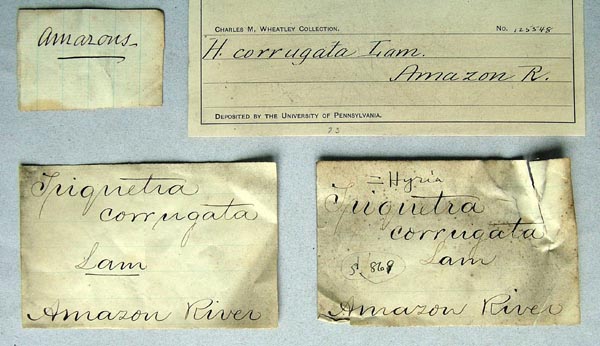 Amazons
CHARLES M. WHEATLEY COLLECTION. No. 125548
H. corrugata Lam.
Amazon R.
DEPOSITED BY THE UNIVERSITY OF PENNSYLVANIA.
23
Triquetra
corrugata
Lam
Amazon River
= Hyria
Triquetra
corrugata
Lam
Amazon River